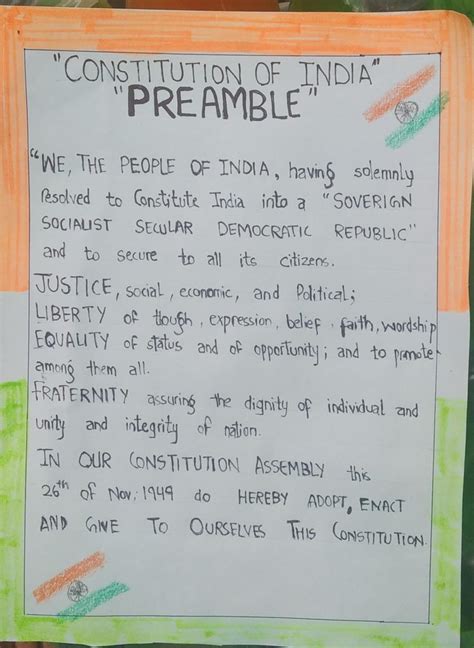 "CONSTITUTION OF INDIA"
"PREAMBLE"
"WE, THE PEOPLE OF INDIA, having solemnly
resolved to Constitute India into a "SOVERIGN
SOCIALIST SECULAR DEMOCRATIC REPUBLIC"
and to secure to all its citizens.
JUSTICE, social, economic, and Political;
LIBERTY of though, expression, belief, faith, wordship
EQUALITY of status and of opportunity; and to promote
among them all.
FRATERNITY assuring the dignity of individual and
unity and integrity of nation.
IN OUR CONSTITUTION ASSEMBLY this
26th of Nov; 1949 do HEREBY ADOPT, ENACT
AND GIVE TO OURSELVES THIS CONSTITUTION.